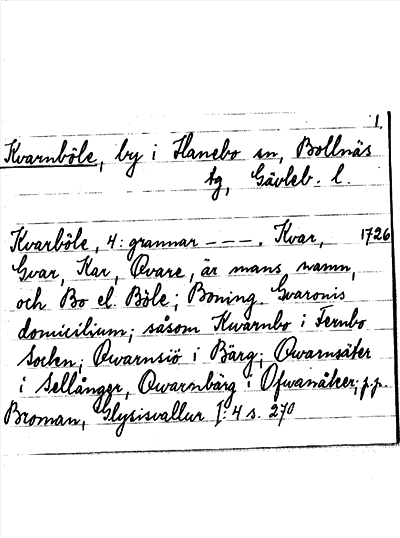 1.
Kvarnböle, by i Hanebo sn, Bollnäs
tg, Gävleb. l.
Kvarböle, 4: grannar – – –. Kvar, 1726
Gvar, Kar, Qvare, är mans namn,
och Bo el. Böle; Boning. Gvaronis
domicilium; såsom Kwarnbo i Fernbo
Socken; Qwarnsiö i Bärg; Qwarnsäter
i Sellånger, Qwarnbärg i Ofwanåker; p.p.
Broman, Glysisvallur I: 4 s. 270